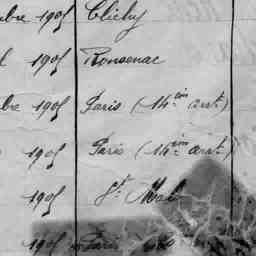 bre 1905 Clichy
1905 Ronsenac
bre 1905 Paris (14.ème arrt)
1905 Paris (14.ème arrt)
1905 St.
1905 Paris